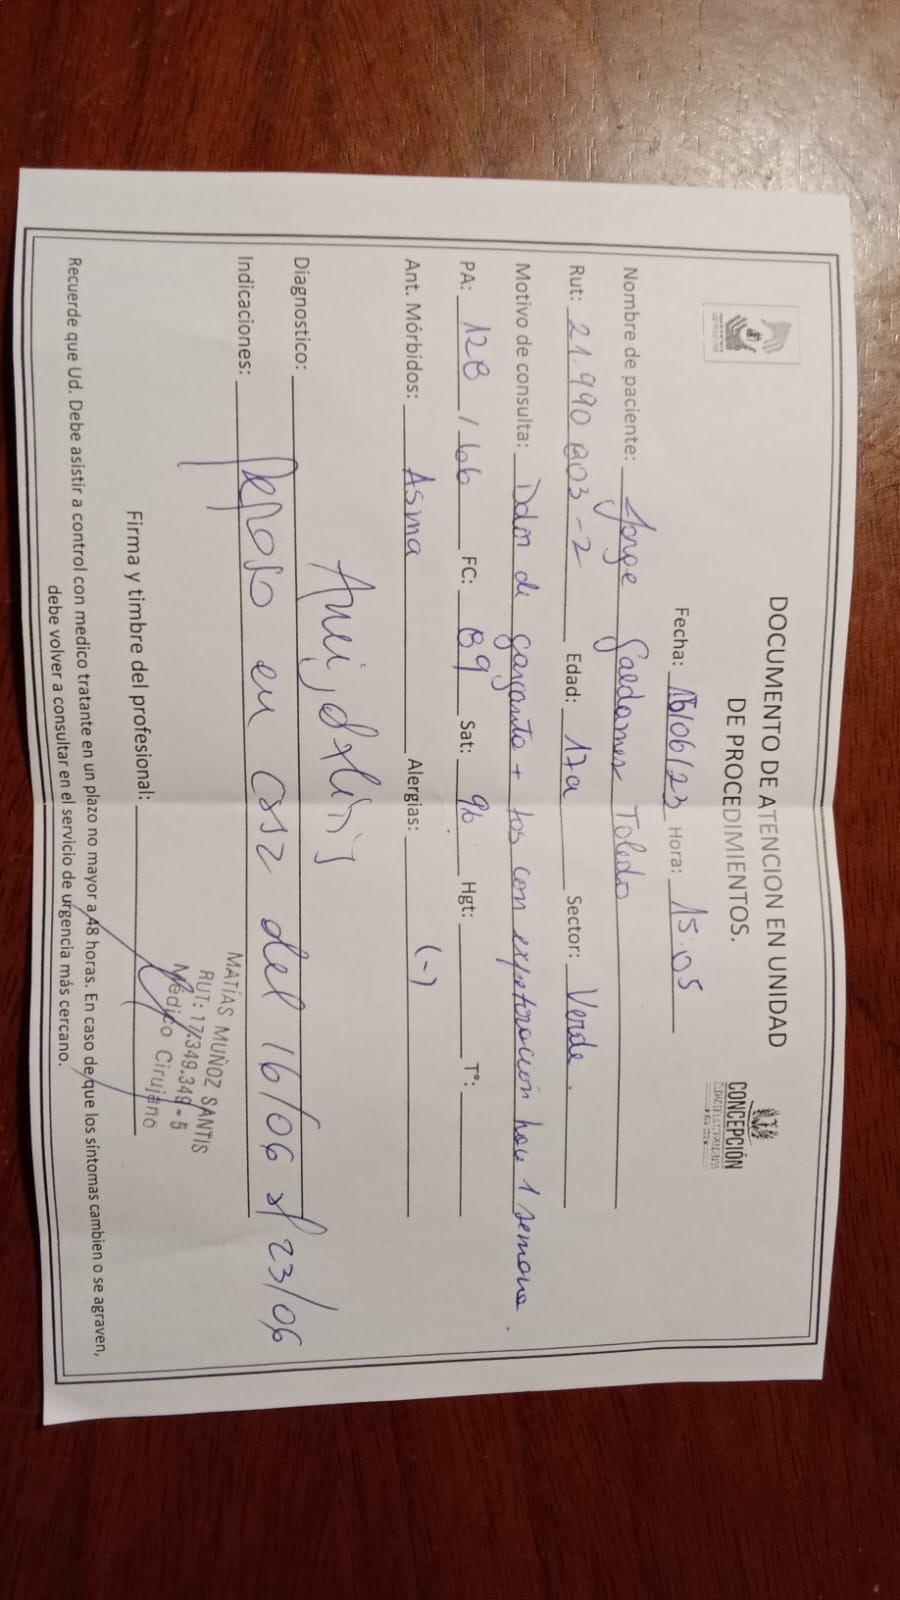 DOCUMENTO DE ATENCION EN UNIDAD
DE PROCEDIMIENTOS.
CONCEPCIÓN
Fecha: 16/06/23 Hora: 15:05
Nombre de paciente: Jorge Galdames Toledo
Rut: 21.990 803-2 Edad: 17a Sector: Verde.
Motivo de consulta: Dolor de garganta + tos con expectoración hace 1 semana.
PA: 128 / 66 FC: 89 Sat: 96 Hgt: T°:
Ant. Mórbidos: Asma Alergias: (-)
Diagnostico:
Indicaciones: Reposo en casa del 16/06 al 23/06
MATÍAS MUÑOZ SANTIS
RUT: 17.349.349-5
Médico Cirujano
Firma y timbre del profesional:
Recuerde que Ud. Debe asistir a control con medico tratante en un plazo no mayor a 48 horas. En caso de que los síntomas cambien o se agraven,
debe volver a consultar en el servicio de urgencia más cercano.